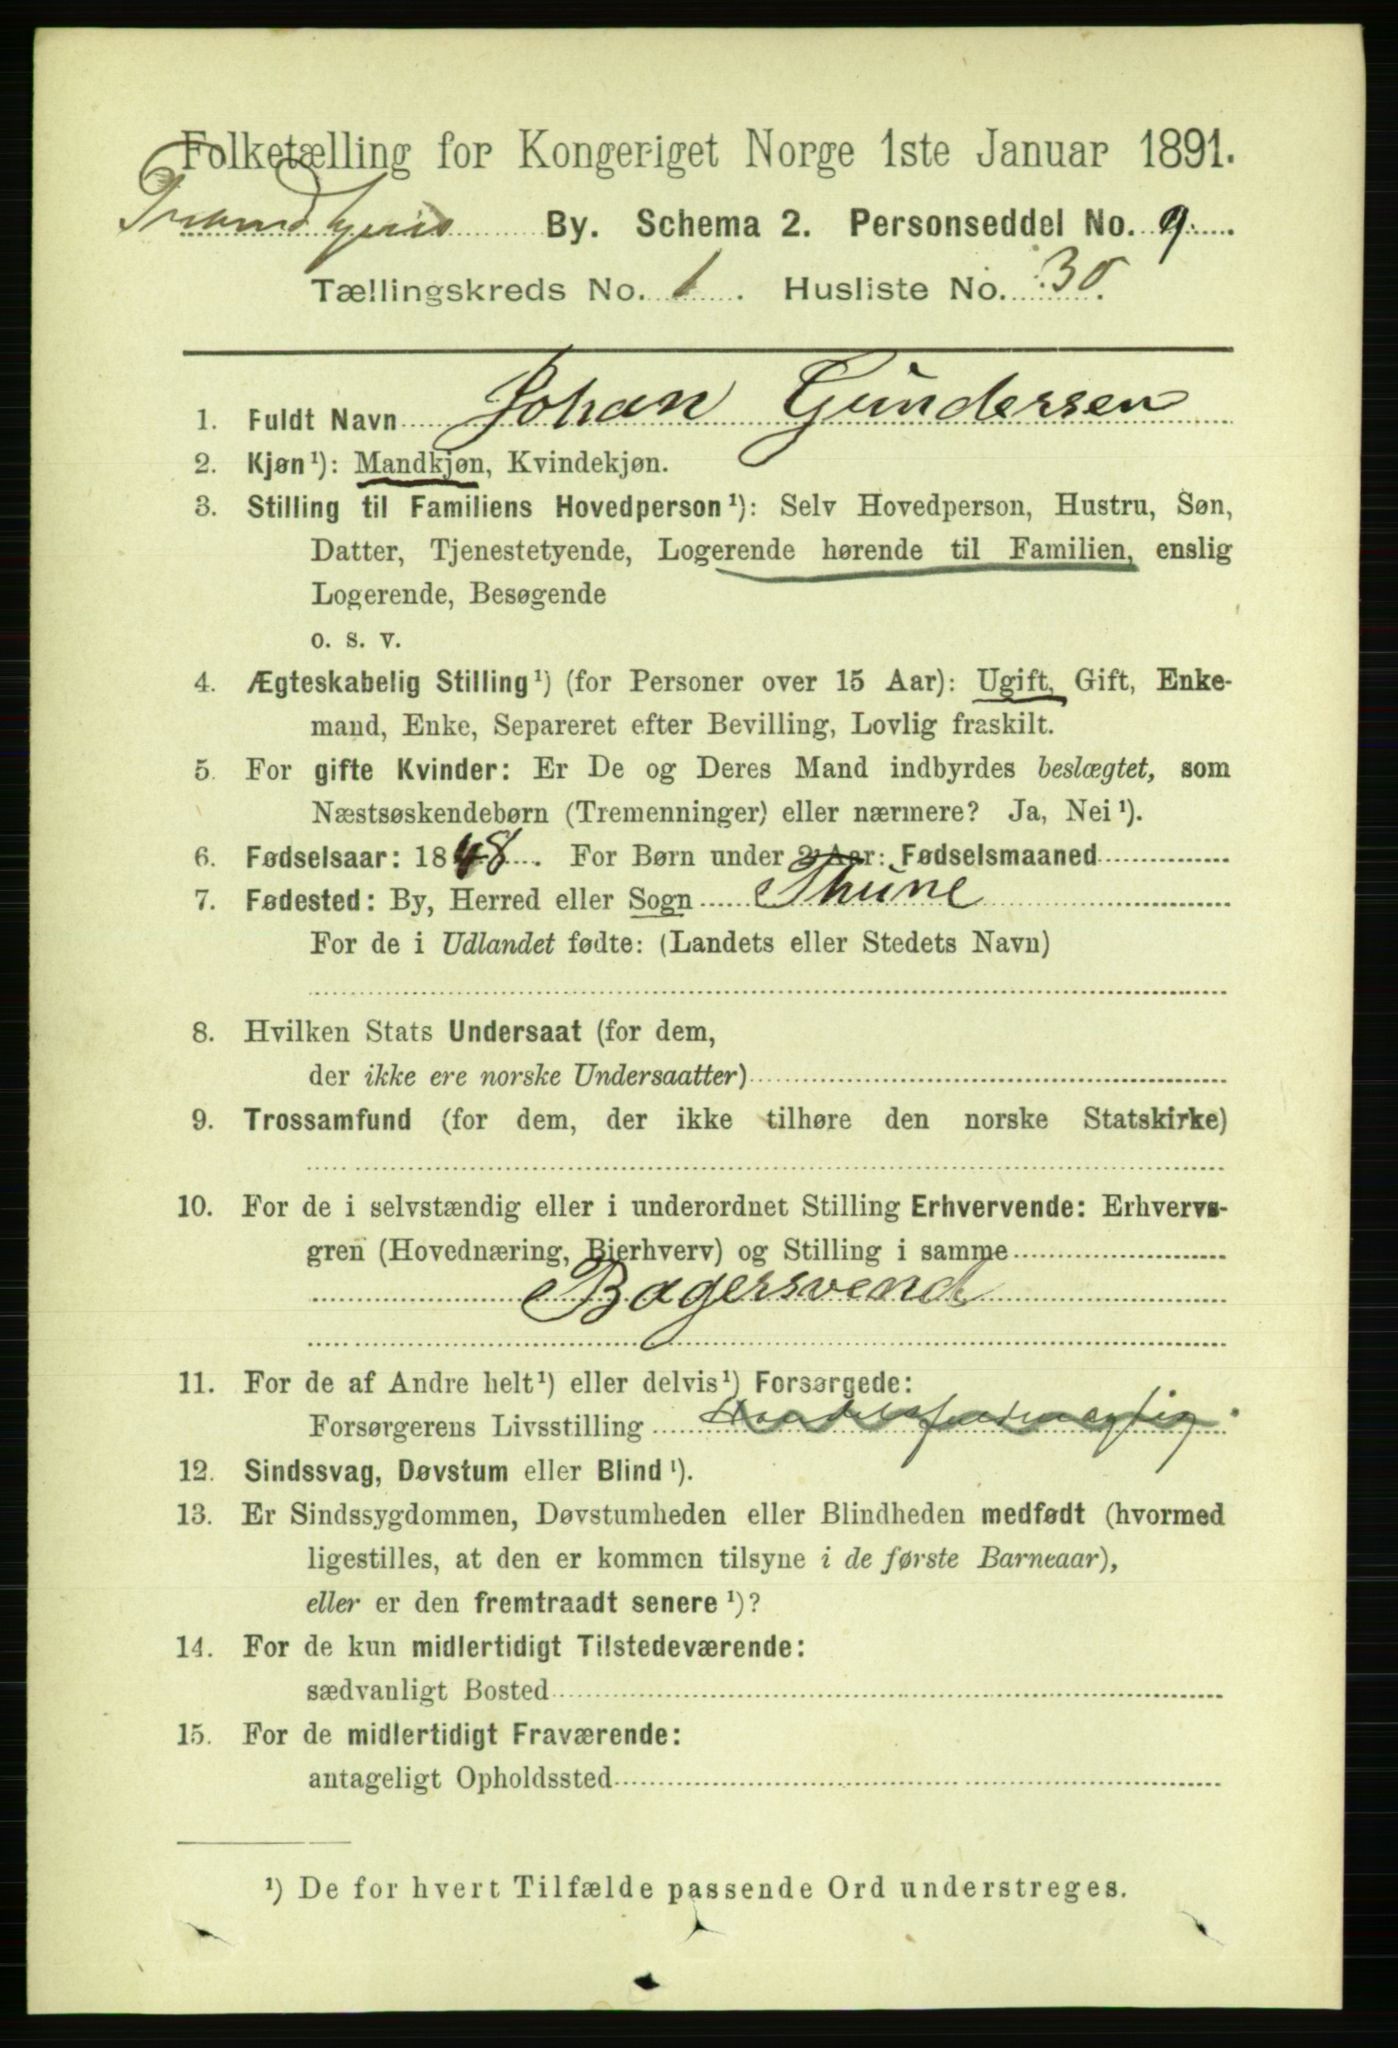 Folketælling for Kongeriget Norge 1ste Januar 1891.
Trondhjems By. Schema 2. Personseddel No. 9.
Tællingskreds No. 1. Husliste No. 30.
1. Fuldt Navn Johan Gundersen
2. Kjøn¹): Mandkjøn, Kvindekjøn.
3. Stilling til Familiens Hovedperson¹): Selv Hovedperson, Hustru, Søn,
Datter, Tjenestetyende, Logerende hørende til Familien, enslig
Logerende, Besøgende
o. s. v.
4. Ægteskabelig Stilling¹) (for Personer over 15 Aar): Ugift, Gift, Enke-
mand, Enke, Separeret efter Bevilling, Lovlig fraskilt.
5. For gifte Kvinder: Er De og Deres Mand indbyrdes beslægtet, som
Næstsøskendebørn (Tremenninger) eller nærmere? Ja, Nei¹).
6. Fødselsaar: 1848. For Børn under 2 Aar: Fødselsmaaned
7. Fødested: By, Herred eller Sogn Thune
For de i Udlandet fødte: (Landets eller Stedets Navn)
8. Hvilken Stats Undersaat (for dem,
der ikke ere norske Undersaatter)
9. Trossamfund (for dem, der ikke tilhøre den norske Statskirke)
10. For de i selvstændig eller i underordnet Stilling Erhvervende: Erhvervs-
gren (Hovednæring, Bierhverv) og Stilling i samme
Bagersvend
11. For de af Andre helt¹) eller delvis¹) Forsørgede:
Forsørgerens Livsstilling
12. Sindssvag, Døvstum eller Blind¹).
13. Er Sindssygdommen, Døvstumheden eller Blindheden medfødt (hvormed
ligestilles, at den er kommen tilsyne i de første Barneaar),
eller er den fremtraadt senere¹)?
14. For de kun midlertidigt Tilstedeværende:
sædvanligt Bosted
15. For de midlertidigt Fraværende:
antageligt Opholdssted
¹) De for hvert Tilfælde passende Ord understreges.